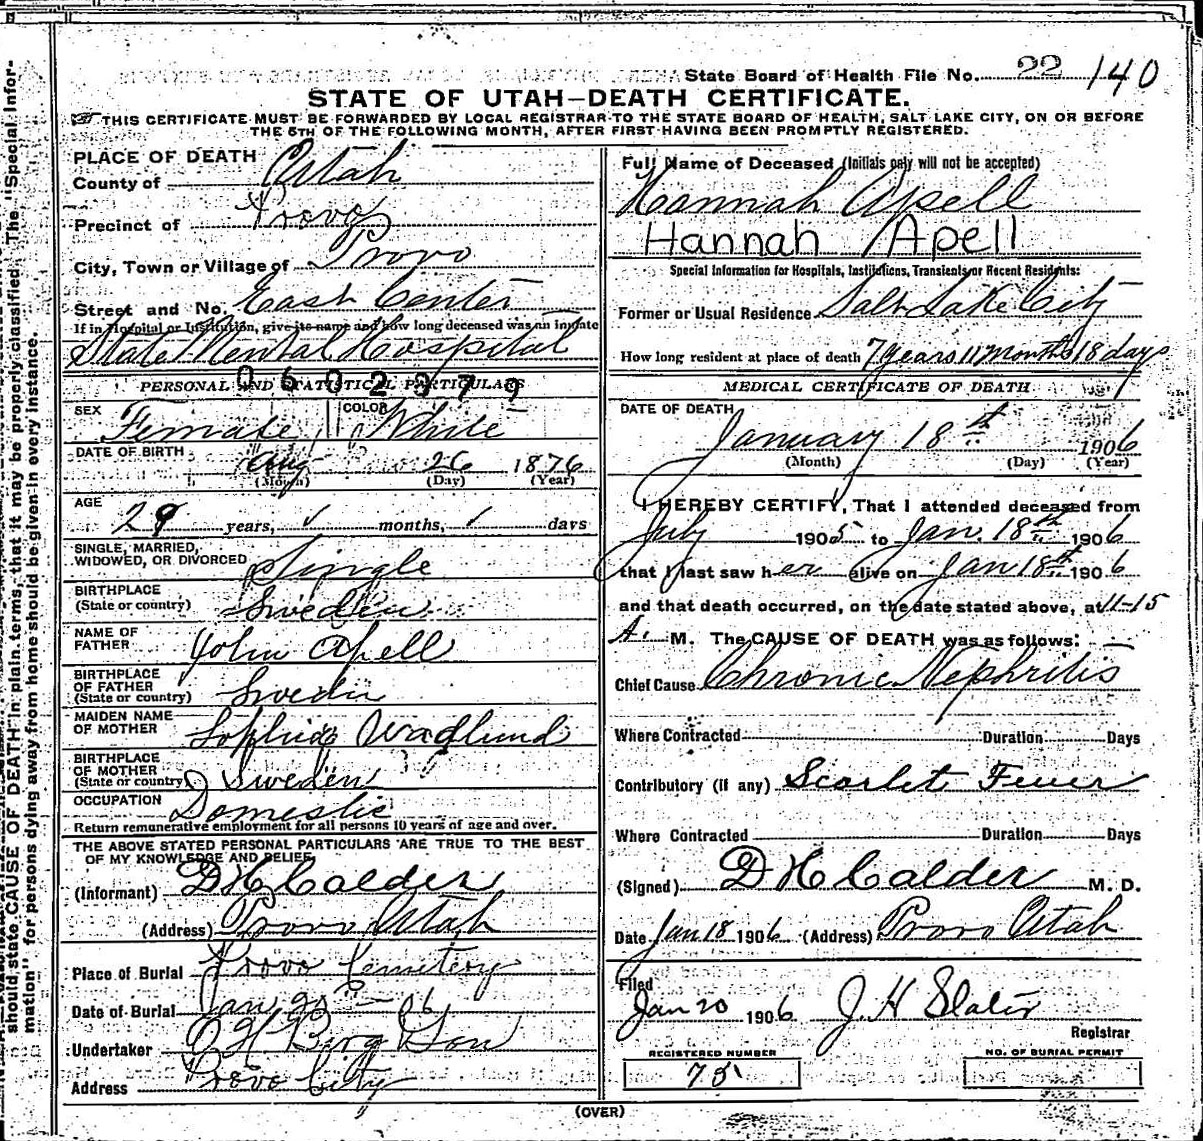 State Board of Health File No. 22 140
STATE OF UTAH—DEATH CERTIFICATE.
THIS CERTIFICATE MUST BE FORWARDED BY LOCAL REGISTRAR TO THE STATE BOARD OF HEALTH, SALT LAKE CITY, ON OR BEFORE
THE 5TH OF THE FOLLOWING MONTH, AFTER FIRST HAVING BEEN PROMPTLY REGISTERED.
should state CAUSE OF DEATH in plain terms, that it may be properly classified. The "Special Infor-
mation" for persons dying away from home should be given in every instance.
PLACE OF DEATH
County of Utah
Precinct of Provo
City, Town or Village of Provo
Street and No. East Center
If in Hospital or Institution, give its name and how long deceased was an inmate
State Mental Hospital
0602379
PERSONAL AND STATISTICAL PARTICULARS
SEX Female COLOR White
DATE OF BIRTH Aug 26 1876
(Month) (Day) (Year)
AGE 29 years, months, days
SINGLE, MARRIED,
WIDOWED, OR DIVORCED Single
BIRTHPLACE
(State or country) Sweden
NAME OF
FATHER John Apell
BIRTHPLACE
OF FATHER
(State or country) Sweden
MAIDEN NAME
OF MOTHER Sophia Wadlund
BIRTHPLACE
OF MOTHER
(State or country) Sweden
OCCUPATION Domestic
Return remunerative employment for all persons 10 years of age and over.
THE ABOVE STATED PERSONAL PARTICULARS ARE TRUE TO THE BEST
OF MY KNOWLEDGE AND BELIEF
(Informant) D H Calder
(Address) Provo Utah
Place of Burial Provo Cemetery
Date of Burial Jan 20 - 06
Undertaker Berg Son
Address Provo City
Full Name of Deceased (Initials only will not be accepted)
Hannah Apell
Hannah Apell
Special Information for Hospitals, Institutions, Transients or Recent Residents:
Former or Usual Residence Salt Lake City
How long resident at place of death 7 years 11 months 18 days
MEDICAL CERTIFICATE OF DEATH
DATE OF DEATH
January 18th 1906
(Month) (Day) (Year)
I HEREBY CERTIFY, That I attended deceased from
July 1905 to Jan. 18th 1906
that I last saw her alive on Jan 18th 1906
and that death occurred, on the date stated above, at 11-15
A. M. The CAUSE OF DEATH was as follows:
Chief Cause Chronic Nephritis
Where Contracted Duration Days
Contributory (if any) Scarlet Fever
Where Contracted Duration Days
(Signed) D H Calder M. D.
Date Jan 18 1906 (Address) Provo Utah
Filed
Jan 20 1906 J. H Slater
Registrar
REGISTERED NUMBER NO. OF BURIAL PERMIT
75
(OVER)